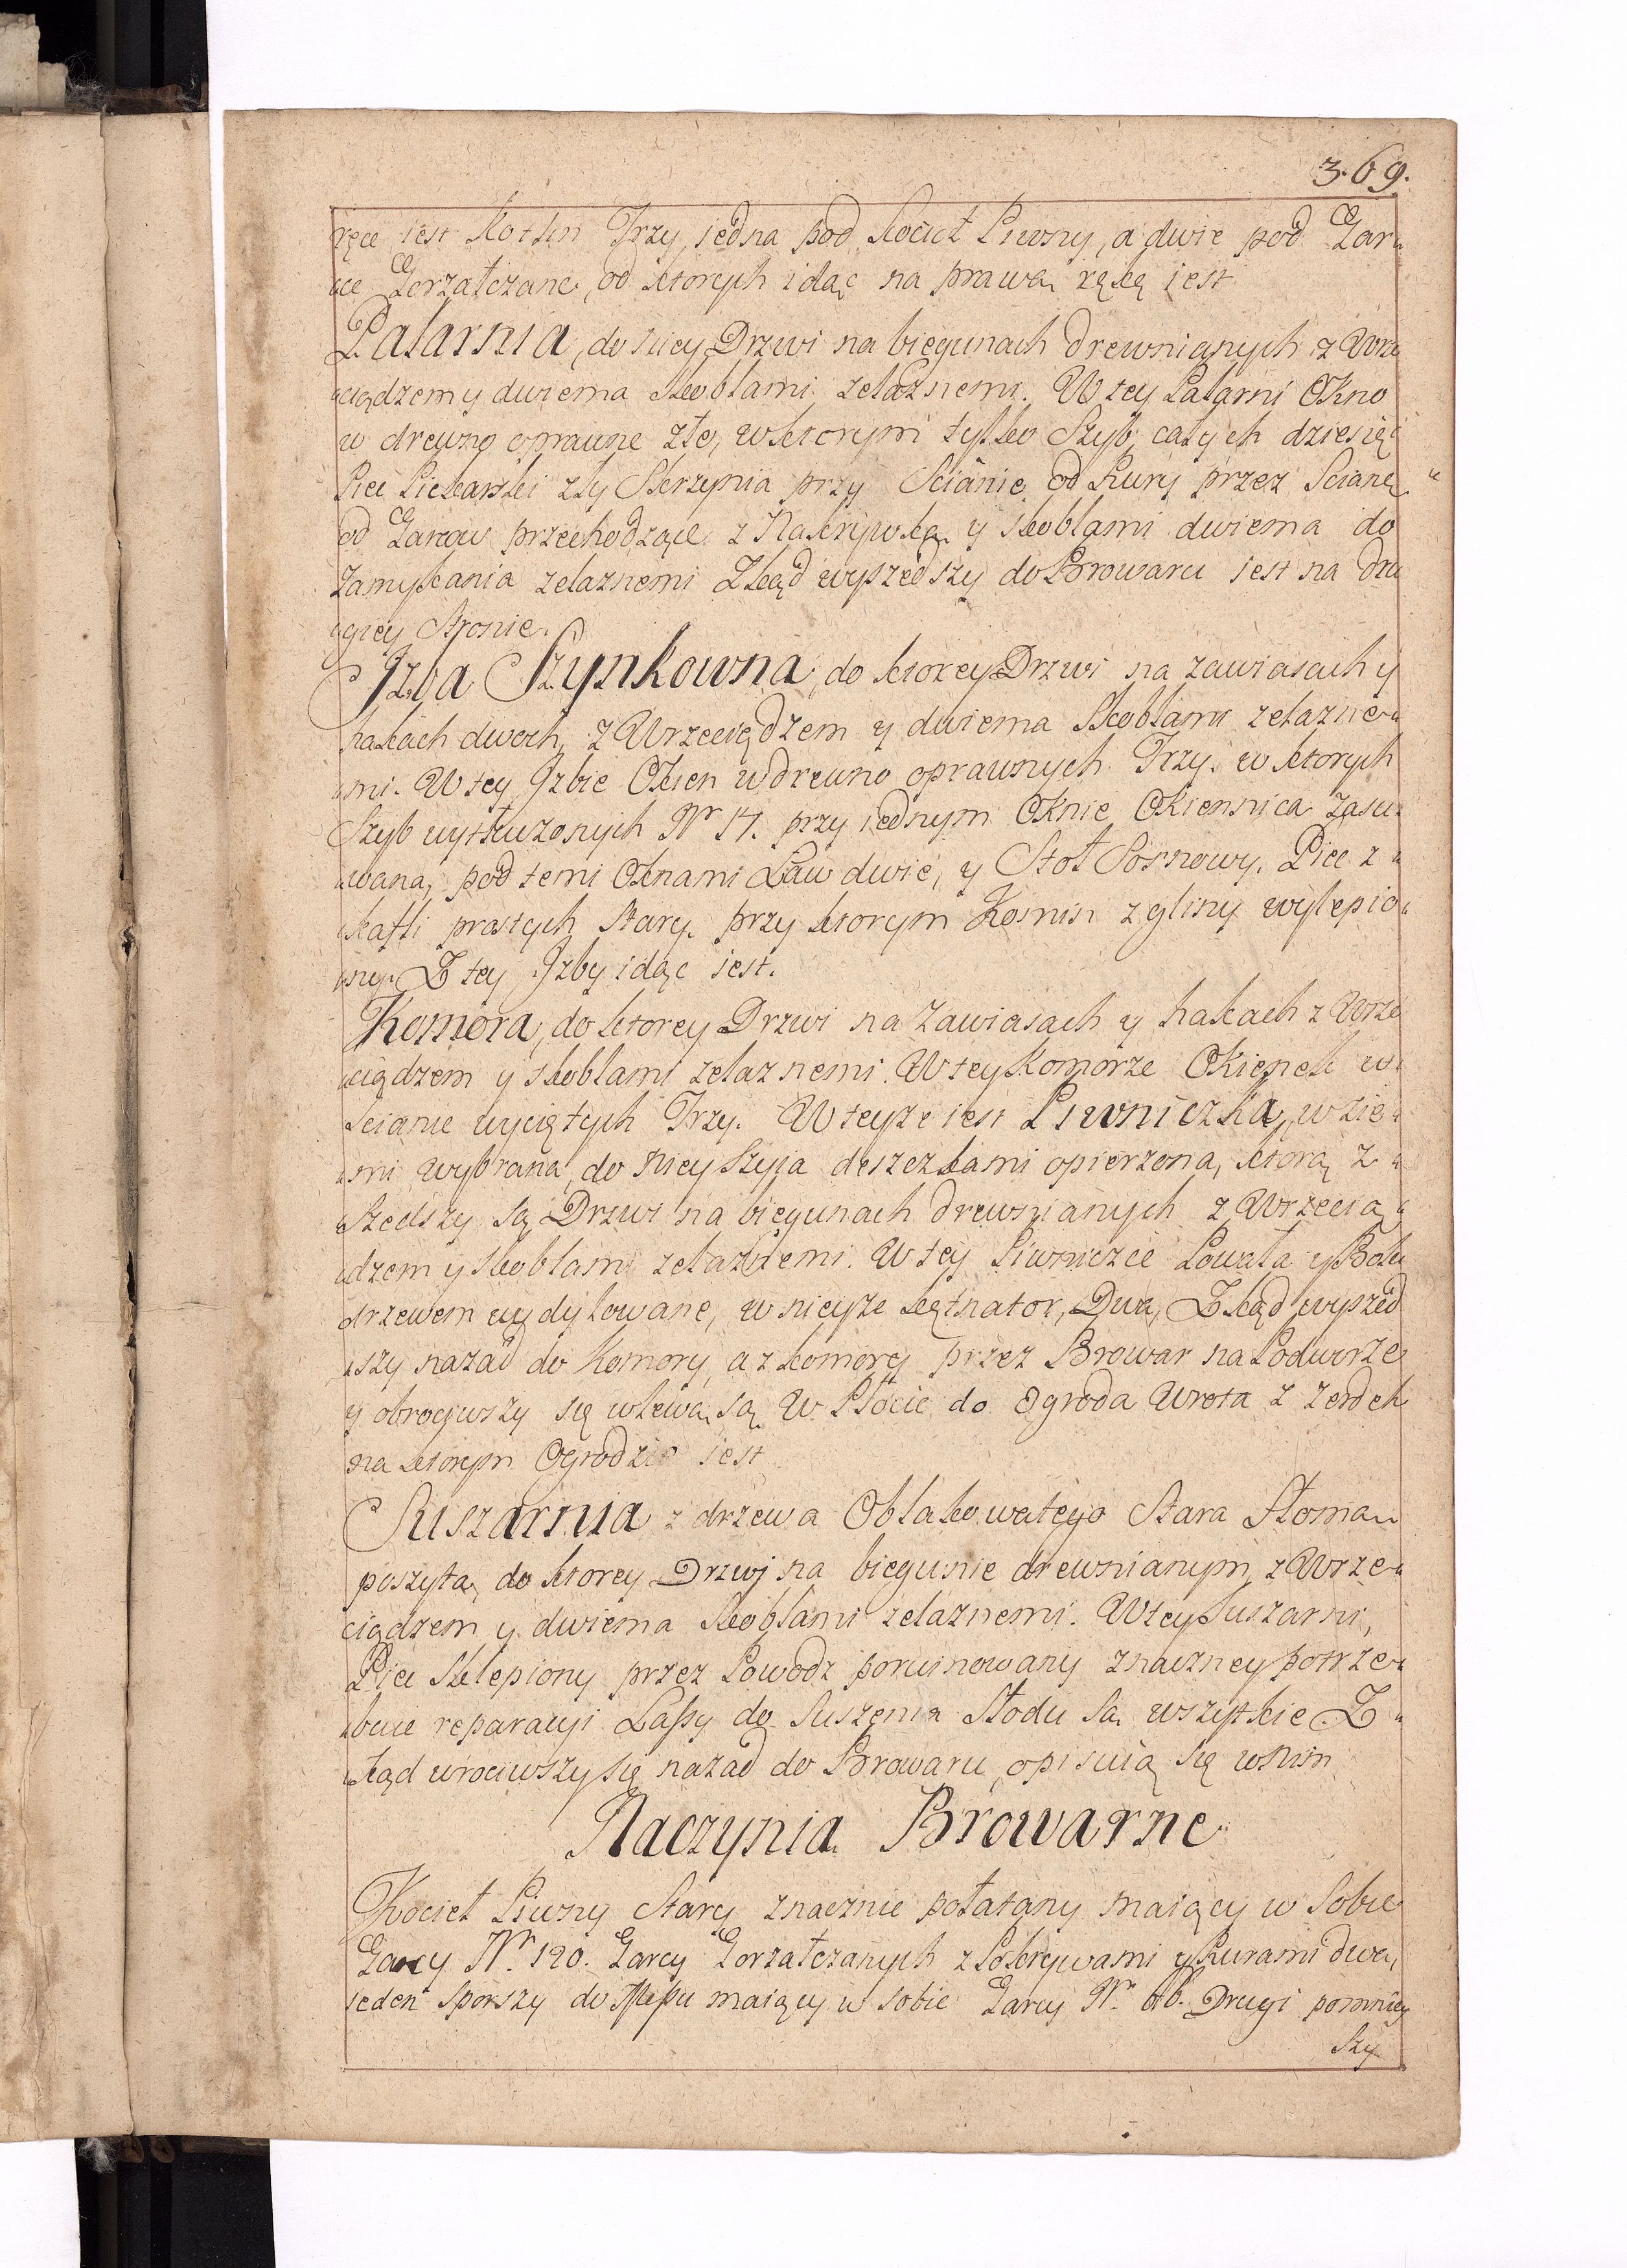 3.69.
ręce iest Kotlin Trzy, iedna pod Kocioł Piwny, a dwie pod Gar„
„ce Gorzałczane, od ktorych idąc na prawą rękę iest
Palarnia, do niey Drzwi na biegunach drewnianych z Wrze
„ciądzem y dwiema skoblami żelaznemi. W tey Palarni Okno
w drewno oprawne złe, w ktorym tylko Szyb całych dziesięć
Piec Piekarski zły Skrzynia przy Scianie od Rury przez Scianę
od Garcow przechodzące z Nakrywką y skoblami dwiema do
zamykania zelaznemi Zkąd wyszedszy do Browaru iest na dru
„giey Stronie.
Izba Szynkowna, do ktorey Drzwi na zawiasach y
hakach dwoch, z Wrzeciądzem y dwiema Skoblami zelazne„
„mi. W tey Izbie Okien w drewno oprawnych Trzy. w ktorych
Szyb wytłuczonych Nr 17. przy iednym Oknie Okiennica zasu„
„wana, pod temi Oknami Ław dwie, y Stoł Sosnowy. Piec z„
„kafli prostych Stary, przy ktorym Komin z gliny wylepio„
„ny. Z tey Izby idąc iest.
Komora, do ktorey Drzwi na Zawiasach y hakach z Wrze
„ciądzem y skoblami zelaznemi. W tey Komorze Okienek w„
Scianie wyciętych Trzy. W teyże iest Piwniczka, w zie„
„mi wybrana, do niey Szyia deszczkami opierzona, ktorą z„
Szedszy są Drzwi na biegunach drewnianych z Wrzecią„
„dzem y skoblami zelaznemi. W tey Piwniczce Powała y Boki
drzewem wydylowane, w nieyże kętnarow, Dwa, Zkąd wyszed
„szy nazad do Komory, a z komory przez Browar na Podworze
y obrociwszy się w lewą, są W Płocie do Ogroda Wrota z zerdek
na ktorym Ogrodzie iest
Suszarnia z drzewa Oblakowatego Stara Słomą„
poszyta, do ktorey Drzwi na biegunie drewnianym, z Wrze„
ciądzem y dwiema Skoblami zelaznemi. W tey Suszarni,
Piec Sklepiony przez Powodz poruinowany znaczney potrze„
„buie reparacyi Lassy do Suszenia Słodu są wszytkie Z„
„kąd wrociwszy się nazad do Browaru, opisuią się w nim
Naczynia Browarne
Kocieł Piwny Stary znacznie połatany maiący w Sobie
Garcy Nr. 120. Garcy Gorzałczanych z Pokrywami y Rurami dwa,
ieden sporszy do maiący w sobie Garcy Nr. Drugi pomniey
Szy